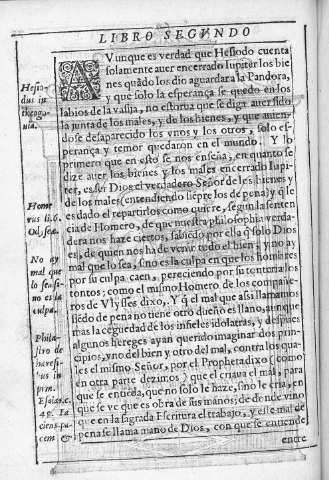 LIBRO SEGVNDO
AVnque es verdad que Hesiodo cuenta
solamente auer encerrado Iupiter los bie
nes quãdo los dio aguardar a la Pandora,
y que solo la esperança se quedo en los
labios de la vasija, no estorua que se diga auer sido
la junta de los males, y de los bienes, y que auien-
dose desaparecido los vnos y los otros, solo es-
perança y temor quedaron en el mundo. Y lo
primero que en esto se nos enseña, en quanto se
dize auer los bienes y los males encerrado Iupi-
ter, es ser Dios el verdadero Señor de los bienes y
de los males (entendiendo siẽpre los de pena) y q̃ le
es dado el repartirlos como quiere, segun la senten
cia de Homero, de que nuestra philosophia verda-
dera nos haze ciertos, sabiẽdo por ella q̃ solo Dios
es, de quien nos ha de venir todo el bien; y no ay
mal que lo sea, sino es la culpa en que los hombres
por su culpa caen, pereciendo por su tonteria los
tontos; como el mismo Homero de los compañe-
ros de Vlysses dixo. Y q̃ el mal que assi llamamos
siẽdo de pena no tiene otro dueño es llano, aunque
mas la ceguedad de los infieles idolatras, y despues
algunos hereges ayan querido imaginar dos prin-
cipios, vno del bien y otro del mal, contra los qua-
les el mismo Señor, por el Propheta dixo (como
en otra parte dezimos) que el criaua el mal, para
que se entiẽda, que no solo le haze, sino le cria, en
que se ve que es obra de sus manos; de donde vino
que en la sagrada Escritura el trabajo, y este mal de
pena se llama mano de Dios, con que se entiende
entre
Hesio-
dus in
theogo-
nia.
Home
rus li.6.
Odyssea.
No ay
mal que
lo sea si-
no es la
culpa.
Phila-
stro de
heresi-
bus in
prin.
Esaiæ.c.
45. Fa
ciens pa-
cem &c.